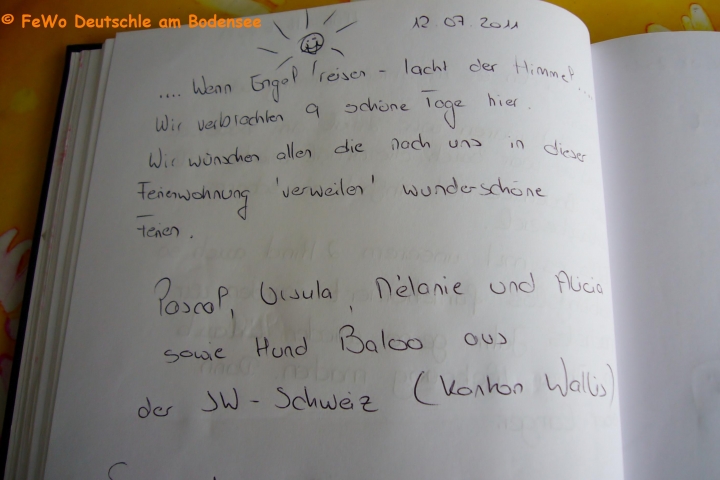 © FeWo Deutschle am Bodensee
12.07.2011
.... Wenn Engel 'reisen - lacht der Himmel....
Wir verbrachten 9 schöne Tage hier.
Wir wünschen allen die noch uns in dieser
Ferienwohnung 'verweilen' wunderschöne
Ferien.
Pascal, Ursula, Mélanie und Alicia
sowie Hund Baloo aus
der SW-Schweiz (Kanton Wallis)